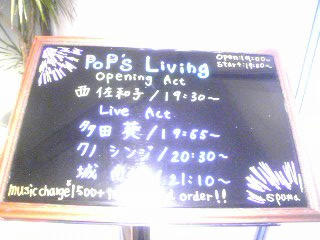 PoP's Living
Open:19:00~
Start:19:30~
Opening Act
西 佐和子/19:30~
Live Act
多田 葵/19:55~
クノ シンジ/20:30~
城 /21:10~
music charge ¥1500+ order!!